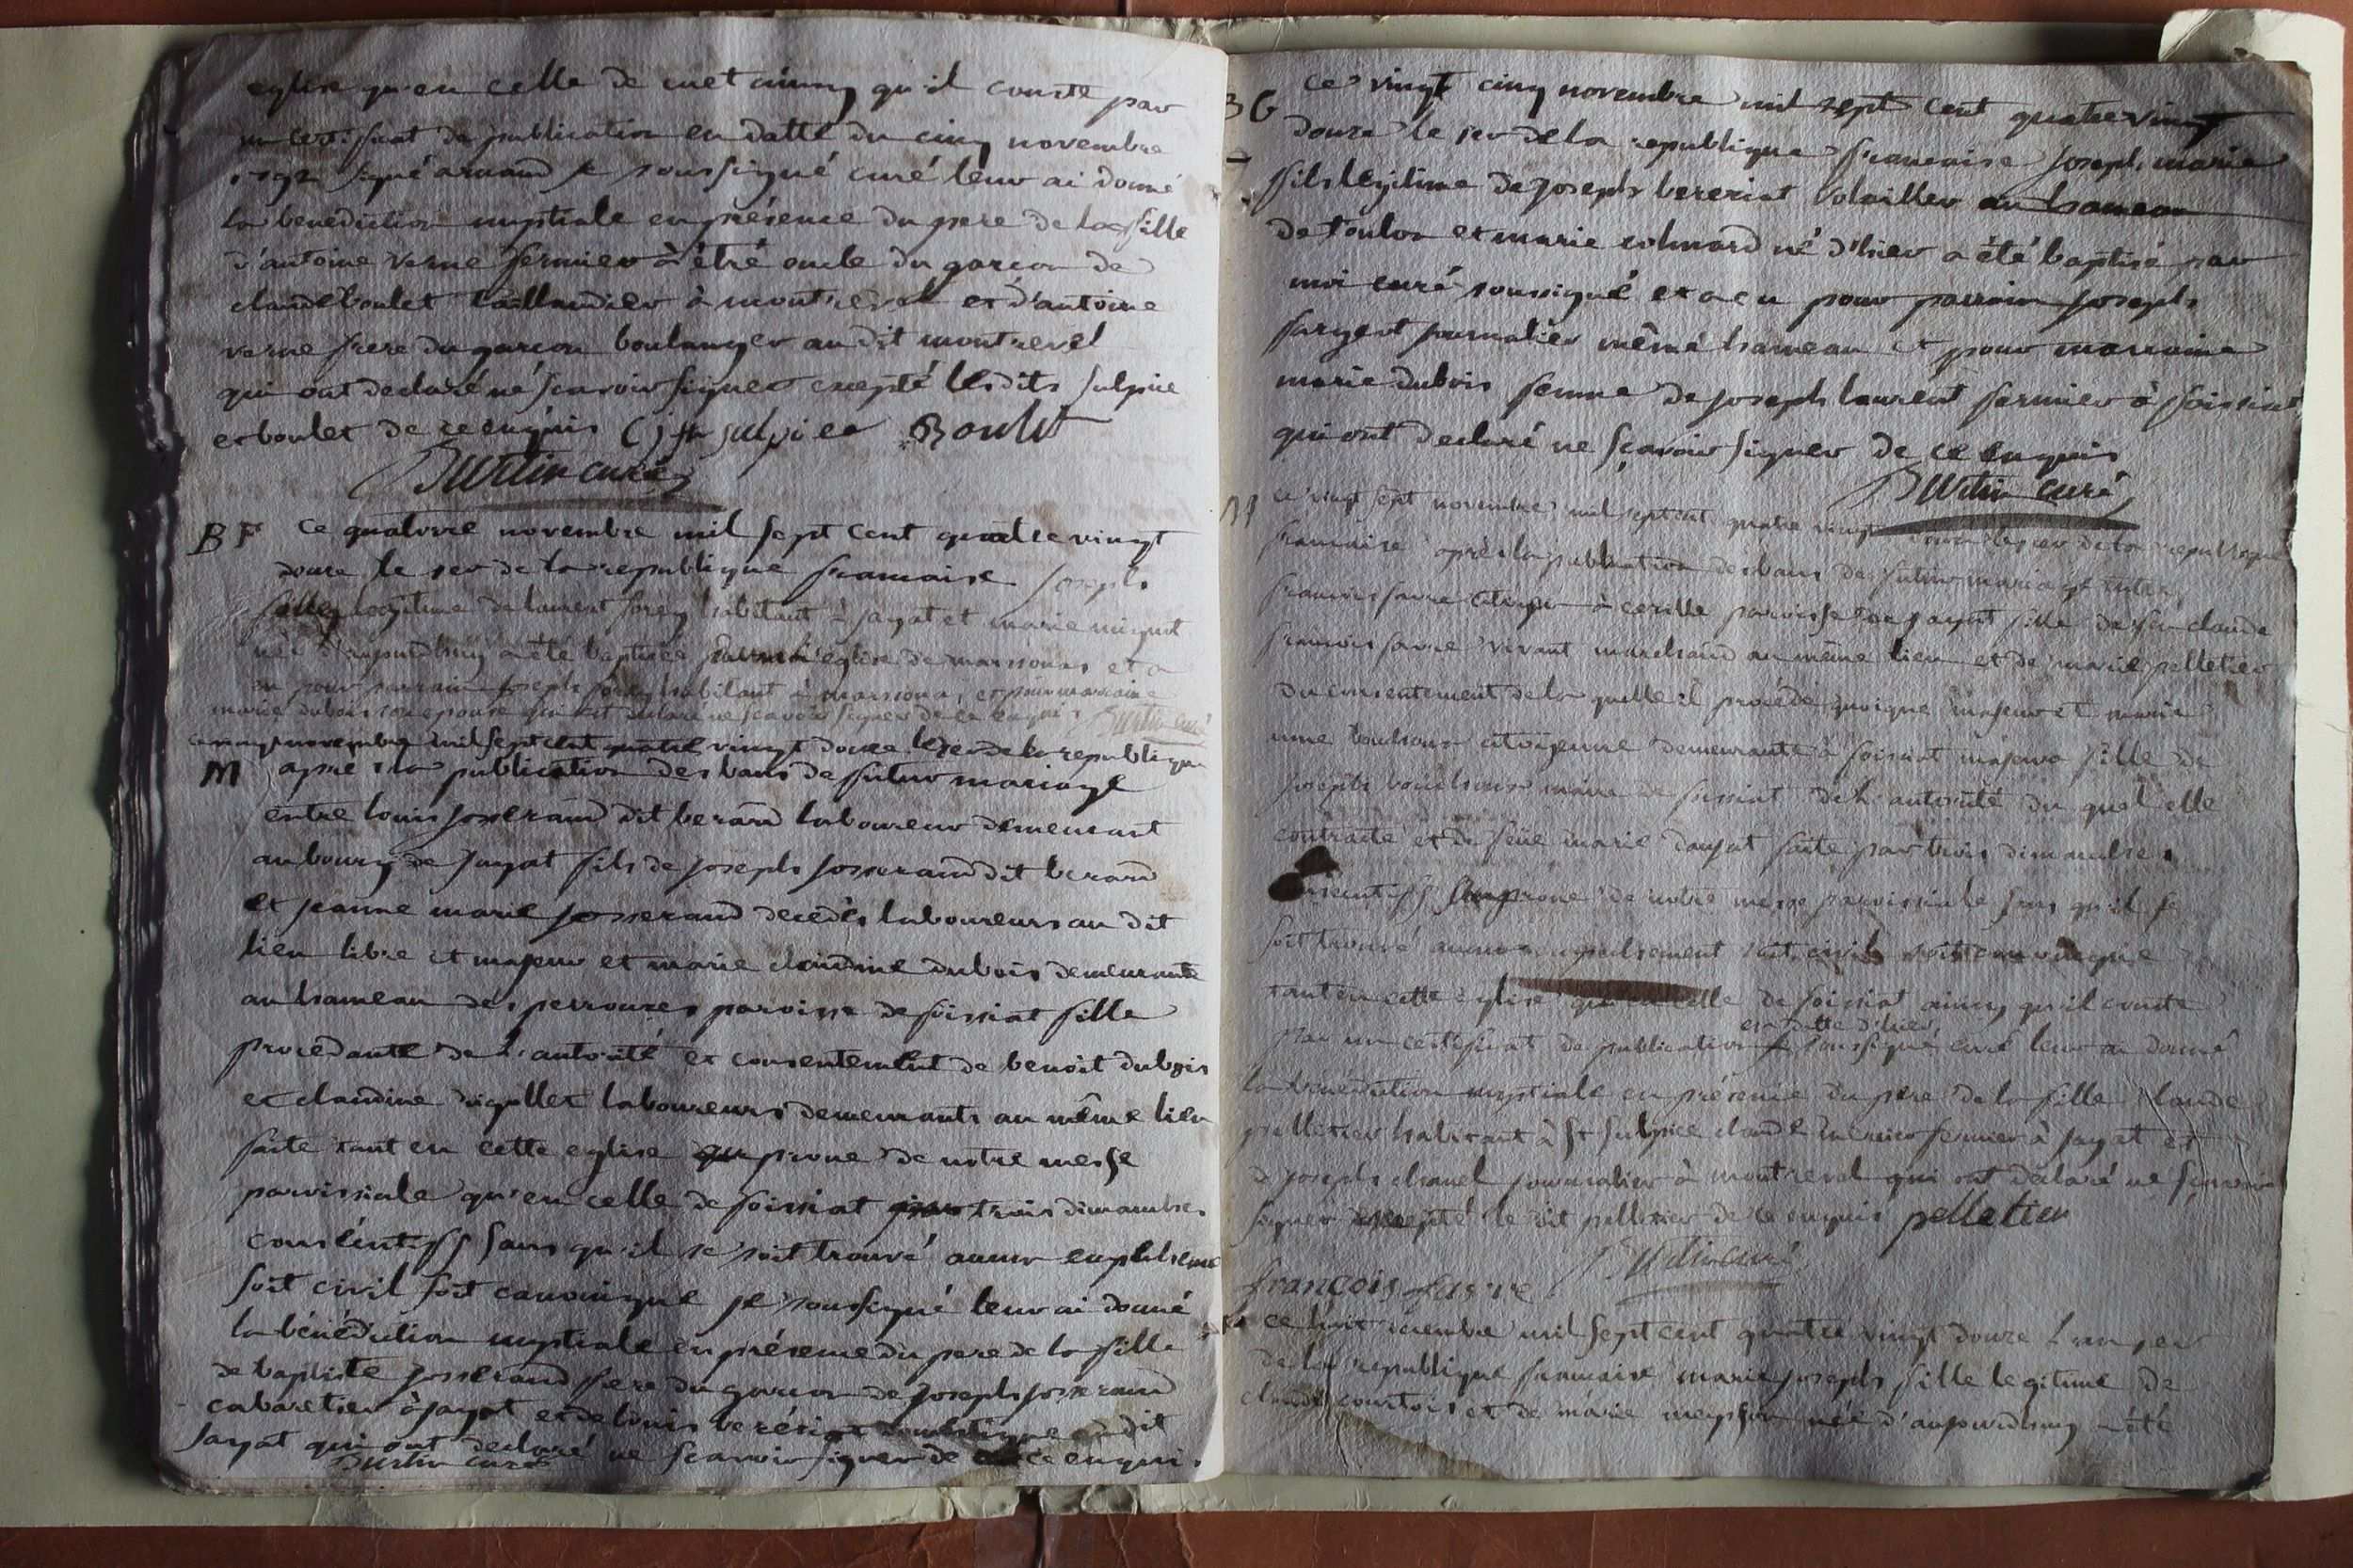 eglise qu'en celle de cuet ainsy qu'il conste par
un certificat de publication en datte du cinq novembre
1792 signé arnaud je soussigné curé leur ai donné
la benediction nuptiale en présence du pere de la fille
d'antoine verne fermier à étré oncle du garcon de
claude boulet taillandier à montrevel et d'antoine
verne frere du garcon boulanger au dit montrevel
qui ont declaré ne scavoir signer excepté lesdits sulpice
et boulet de ce enquis sulpice Boulet
Burtin curé
BF ce quatorze novembre mil sept cent quatre vingt
douze le 1er de la republique francaise joseph
fille legitime de laurent forey habitant à jayat et marie
née d'aujourdhuy a été baptisée l'eglise de marsonas et a
eu pour parrain joseph forey habitant à marsonas et pour marraine
marie dubois son epouse qui ont declaré ne scavoir signer de ce enquis Burtin curé
novembre mil sept cent quatre vingt douze le 1er de la republique
M apres la publication des bans de futur mariage
entre louis josserand dit berard laboureur demeurant
au bourg de jayat fils de joseph josserand dit berard
et jeanne marie josserand decedés laboureurs au dit
lieu libre et majeur et marie claudine dubois demeurante
au hameau des perrouzes paroisse de foissiat fille
procedante de l'autorité et consentement de benoit dubois
et claudine laboureurs demeurants au même lieu
faite tant en cette eglise au prone de notre messe
paroissiale qu'en celle de foissiat par trois dimanches
consécutiffs sans qu'il se soit trouvé aucun empêchement
soit civil soit canonique je soussigné leur ai donné
la bénédiction nuptiale en présence du pere de la fille
de baptiste josserand frere du garcon de joseph josserand
cabaretier à jayat et de louis beréziat domestique audit
jayat qui ont declaré ne scavoir signer de ce enquis
Burtin curé
BG ce vingt cinq novembre mil sept cent quatre vingt
douze le 1er de la republique francaise joseph marie
fils legitime de joseph bereziat volailler au hameau
de toulon et marie né d'hier a été baptisé par
moi curé soussigné et a eu pour parrain joseph
fargeot journalier même hameau et pour marraine
marie dubois femme de joseph laurent fermier à foissiat
qui ont declaré ne sçavoir signer de ce enquis
Burtin curé
ce vingt sept novembre mil sept cent quatre vingt douze le 1er de la republique
francaise après la publication des bans de futur mariage entre
francois favre citoyen à paroisse de jayat fils de feu claude
francois favre vivant marchand au même lieu et de marie pelletier
du consentement de la quelle il procéde quoique majeur et marie
citoyenne demeurante à foissiat majeure fille de
joseph maire de foissiat de l'autorité du quel elle
contracte et de feue marie faite par trois dimanches
consecutiffs au prone de notre messe paroissiale sans qu'il se
soit trouvé aucun empechement soit civil soit canonique
tant en cette eglise qu'en celle de foissiat ainsy qu'il conste
en datte d'hier
par un certificat de publication je soussigné curé leur ai donné
la bénédiction nuptiale en présence du pere de la fille claude
pelletier habitant à St sulpice claude fermier à jayat et
de joseph chanel journalier à montrevel qui ont declaré ne sçavoir
signer excepté le dit pelletier de ce enquis pelletier
Burtin curé
françois favre
ce huit mil sept cent quatre vingt douze l'an 1er
de la republique francaise marie joseph fille legitime de
claude courtois et de marie née d'aujourdhuy a été